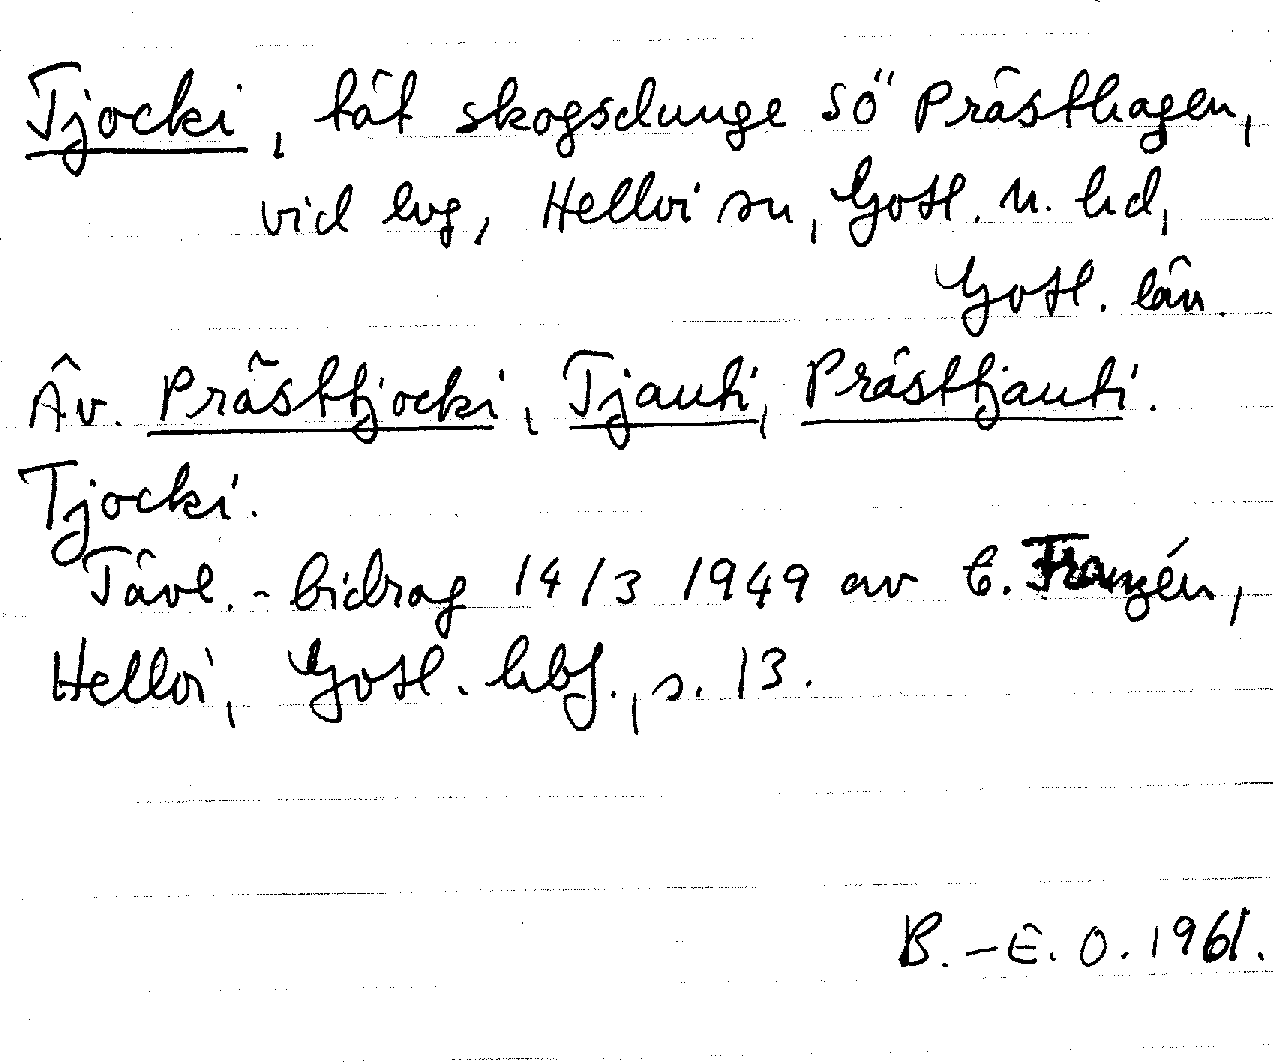 Tjocki, tät skogsdunge sö Prästhagen,
vid lvg, Hellvi sn, Gotl. n. hd,
Gotl. län.
Äv. Prästtjocki, Tjauti, Prästtjauti.
Tjocki.
Tävl.-bidrag 14/3 1949 av C. Franzén,
Hellvi, Gotl. hbf., s. 13.
B.-E. O. 1961.